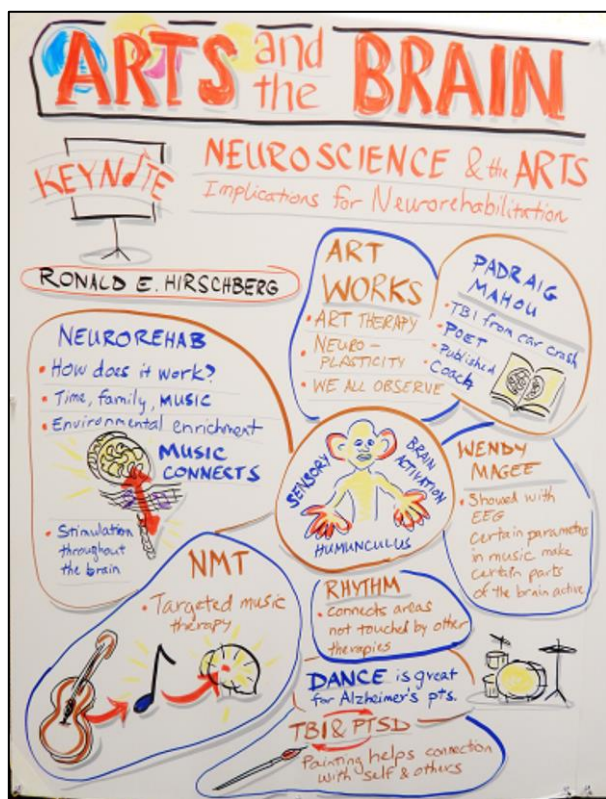 ARTS and the BRAIN
KEYNOTE
NEUROSCIENCE & the ARTS
Implications for Neurorehabilitation
RONALD E. HIRSCHBERG
NEUROREHAB
• How does it work?
• Time, family, MUSIC
• Environmental enrichment
MUSIC
CONNECTS
• Stimulation
throughout
the brain
ART
WORKS
• ART THERAPY
• NEURO-
PLASTICITY
• WE ALL OBSERVE
PADRAIG
MAHOU
• TBI from car crash
• POET
• Published
• Coach
SENSORY
BRAIN
ACTIVATION
HUMUNCULUS
WENDY
MAGEE
• Showed with
EEG
Certain parameters
in music make
certain parts
of the brain active
NMT
• Targeted music
therapy
RHYTHM
• connects areas
not touched by other
therapies
DANCE is great
for Alzheimer's pts.
TBI & PTSD
Painting helps connection
with self & others